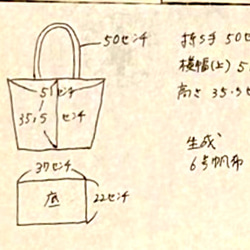 50センチ
51センチ
35.5センチ
37センチ
底
22センチ
持ち手 50セ
横幅(上) 5
高さ 35.5セ
生成
6号帆布